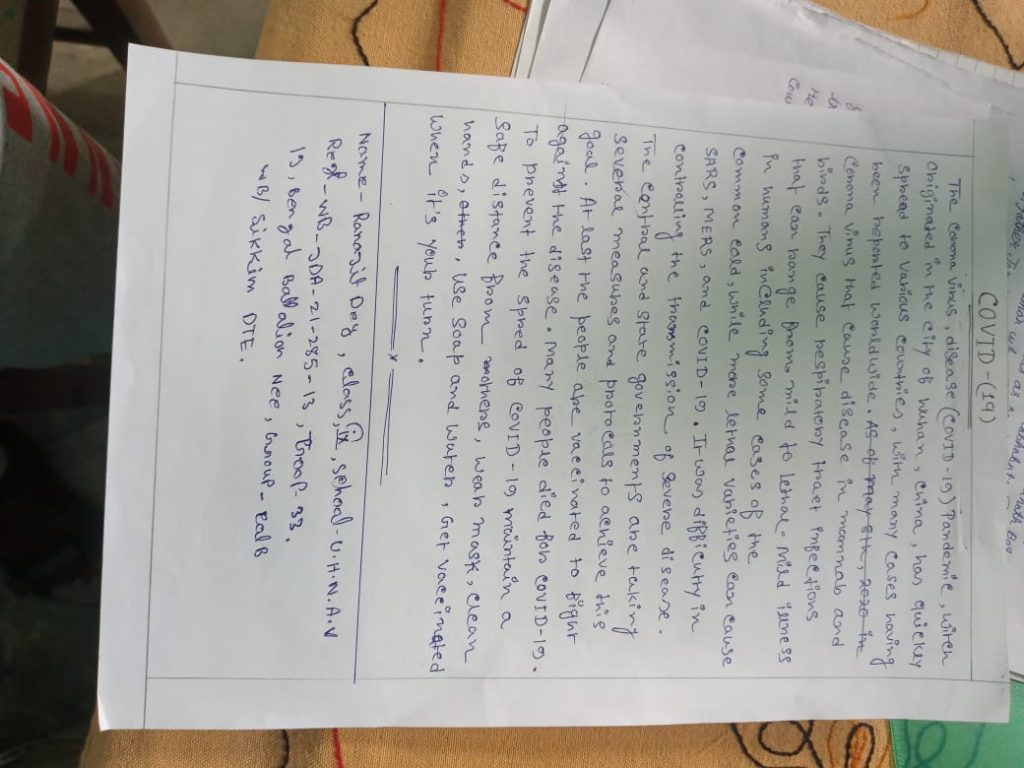 COVID-(19)
The corona virus, disease (COVID-19) pandamic, witch
originated in the city of wuhan, china, has quickey
spread to various countries, with many cases having
been reported worldwide. As of may 8th, 2020 in
Corona virus that cause disease in mammals and
birds. They cause respiratory tract infections
that can range from mild to lethal. Mild illness
in humans including some cases of the
common cold, while more lethal varieties can cause
SARS, MERS, and COVID-19. It was difficulty in
controlling the transmission of severe disease.
The central and state governments are taking
several measures and protocals to achieve this
goal. At last the people are vaccinated to fight
against the disease. Many people died for covid-19.
To prevent the spred of COVID-19 maintain a
safe distance from mothers, wear mask, clean
hands, often, Use soap and water, Get vaccinated
When it's your turn.
x
Name- Ranajit Dey, class, IX, school-U.H.N.A.V
Regt-WB-JDA-21-285-13, Troop-33.
19, Bengal Battalion Nee, Group-
WB/ Sikkim DTE.